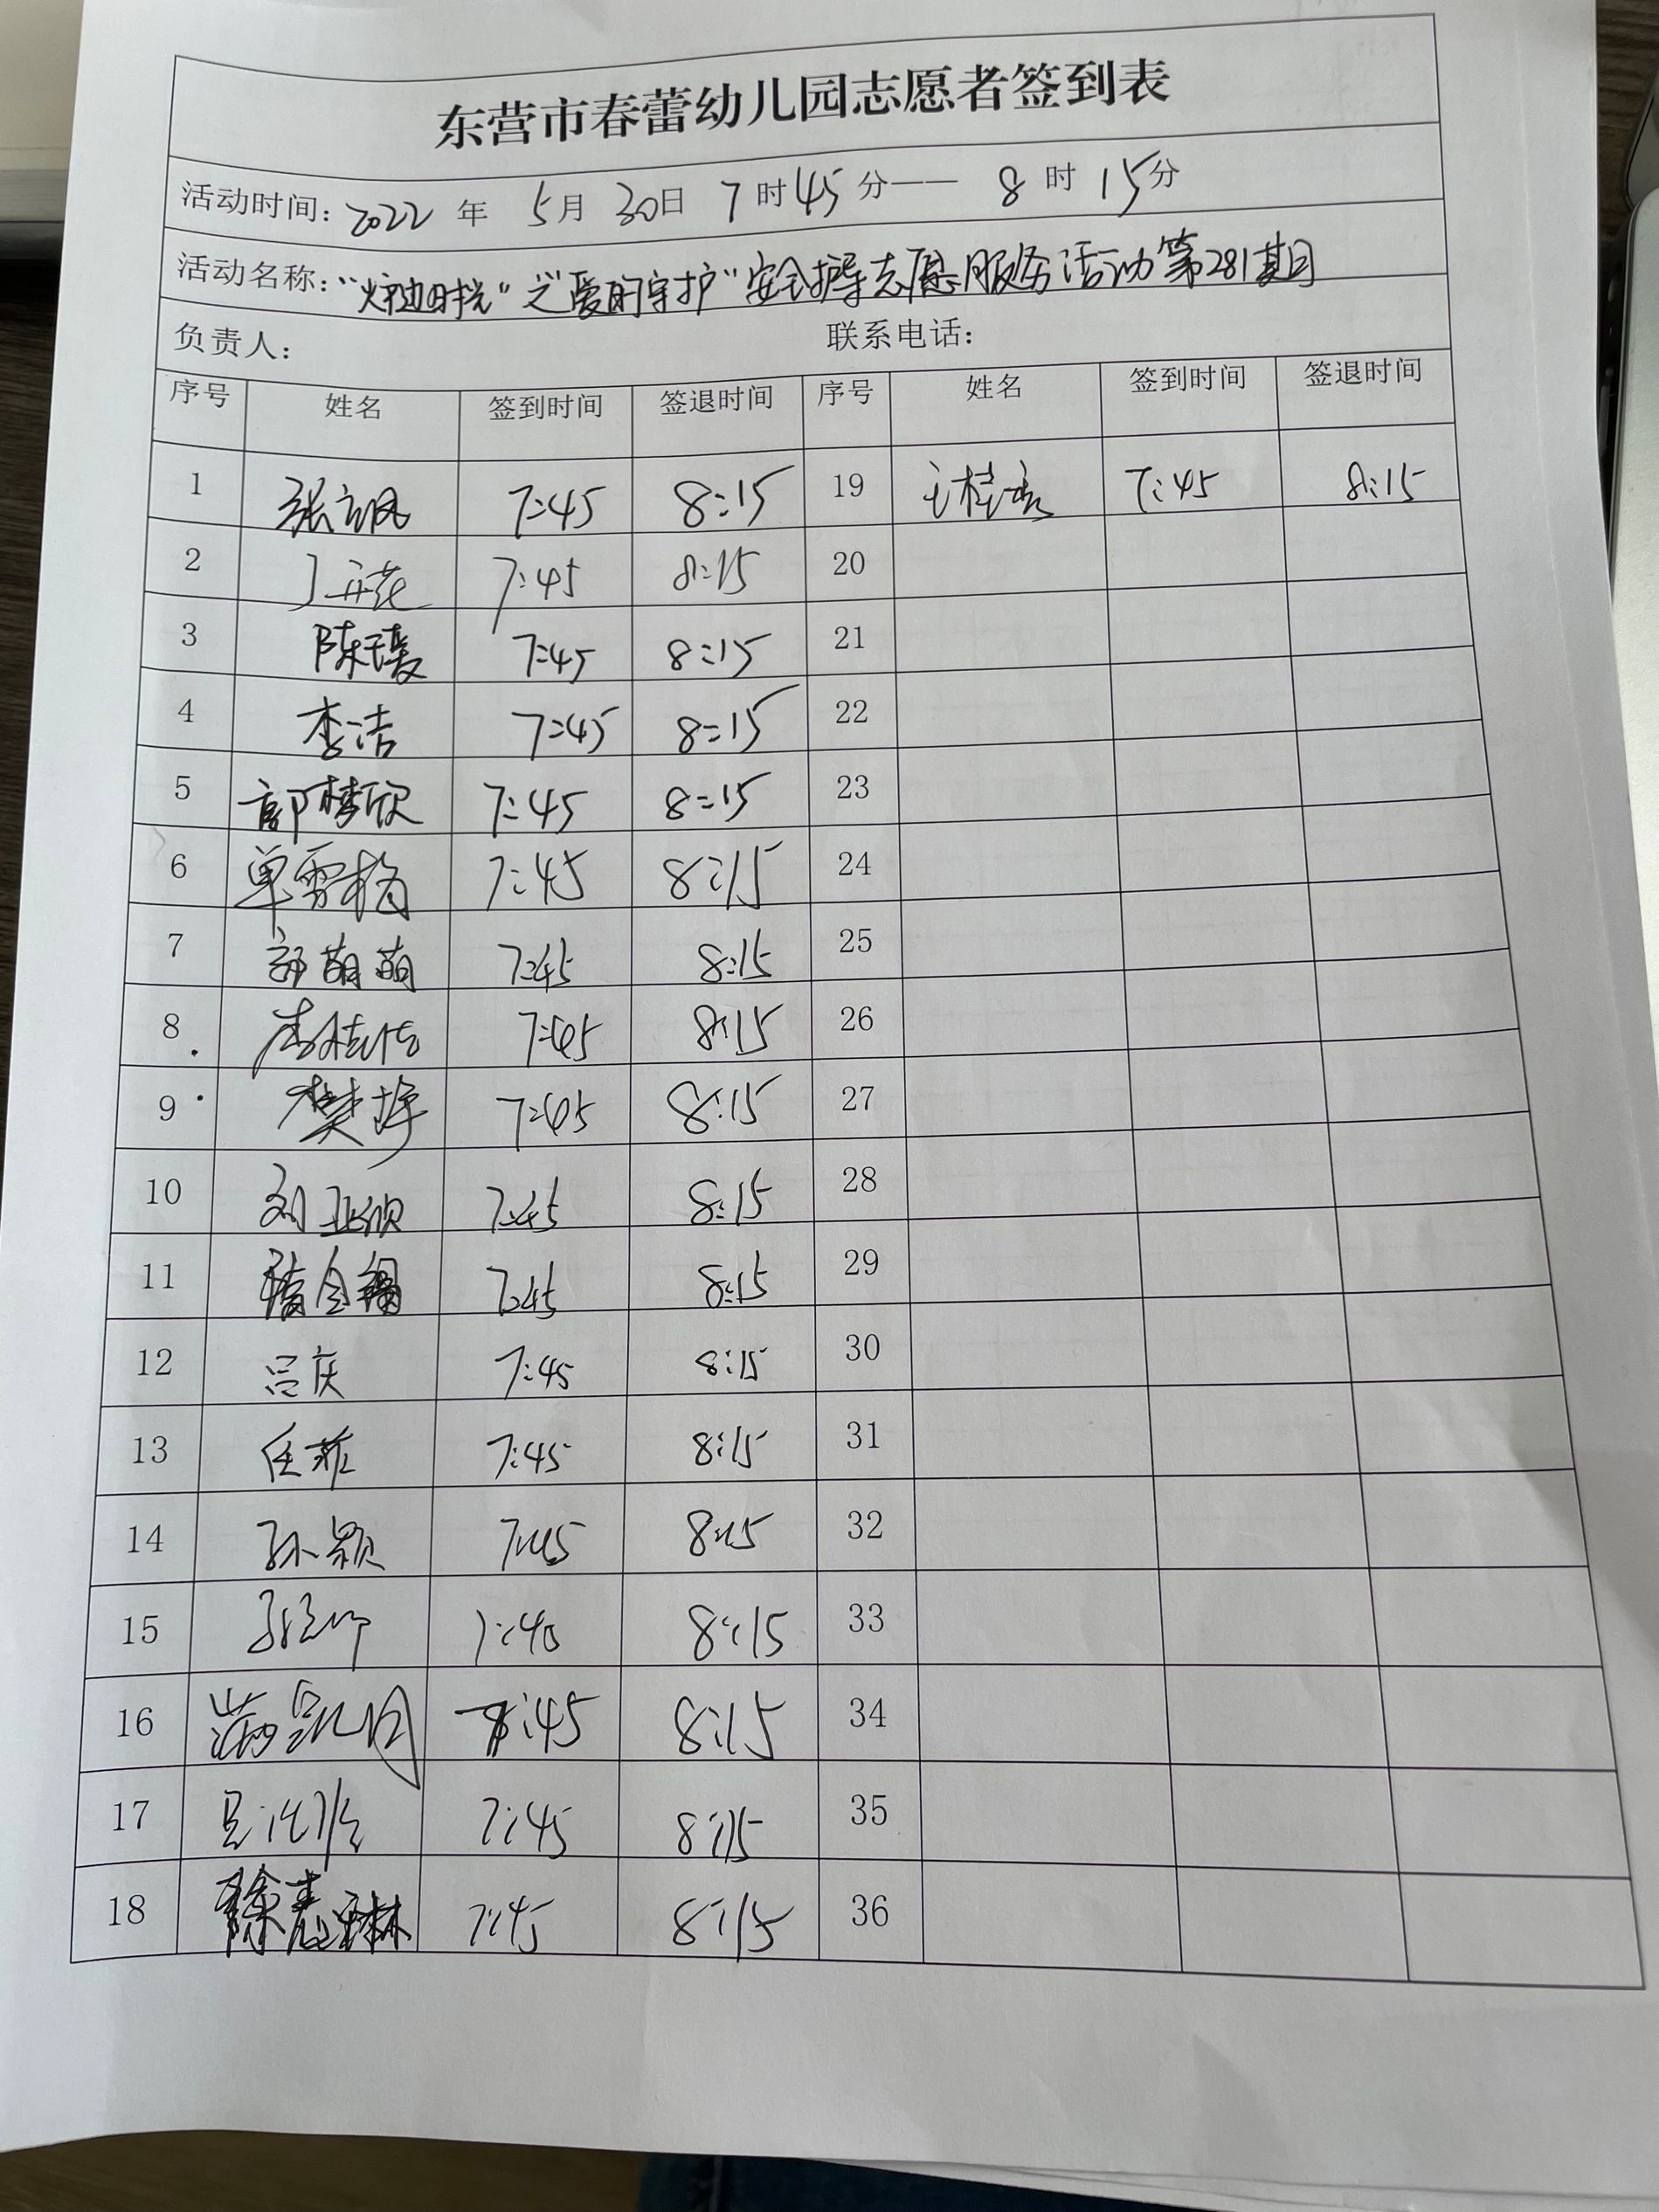 东营市春蕾幼儿园志愿者签到表
活动时间：2022 年 5月 30日 7时45分—— 8时 15分
活动名称：“炉边时光”之“爱的守护”安全护导志愿服务活动第281期
负责人： 联系电话：
序号 姓名 签到时间 签退时间 序号 姓名 签到时间 签退时间
1 张立凤 7:45 8:15 19 7:45 8:15
2 7:45 8:15 20
3 陈瑗 7:45 8:15 21
4 李洁 7:45 8:15 22
5 郭梦欣 7:45 8:15 23
6 单雪梅 7:45 8:15 24
7 郭萌萌 7:45 8:15 25
8 7:45 8:15 26
9 樊婷 7:45 8:15 27
10 刘亚欣 7:45 8:15 28
11 7:45 8:15 29
12 吕庆 7:45 8:15 30
13 任菲 7:45 8:15 31
14 孙颖 7:45 8:15 32
15 8:15 33
16 7:45 8:15 34
17 7:45 8:15 35
18 徐志琳 7:45 8:15 36